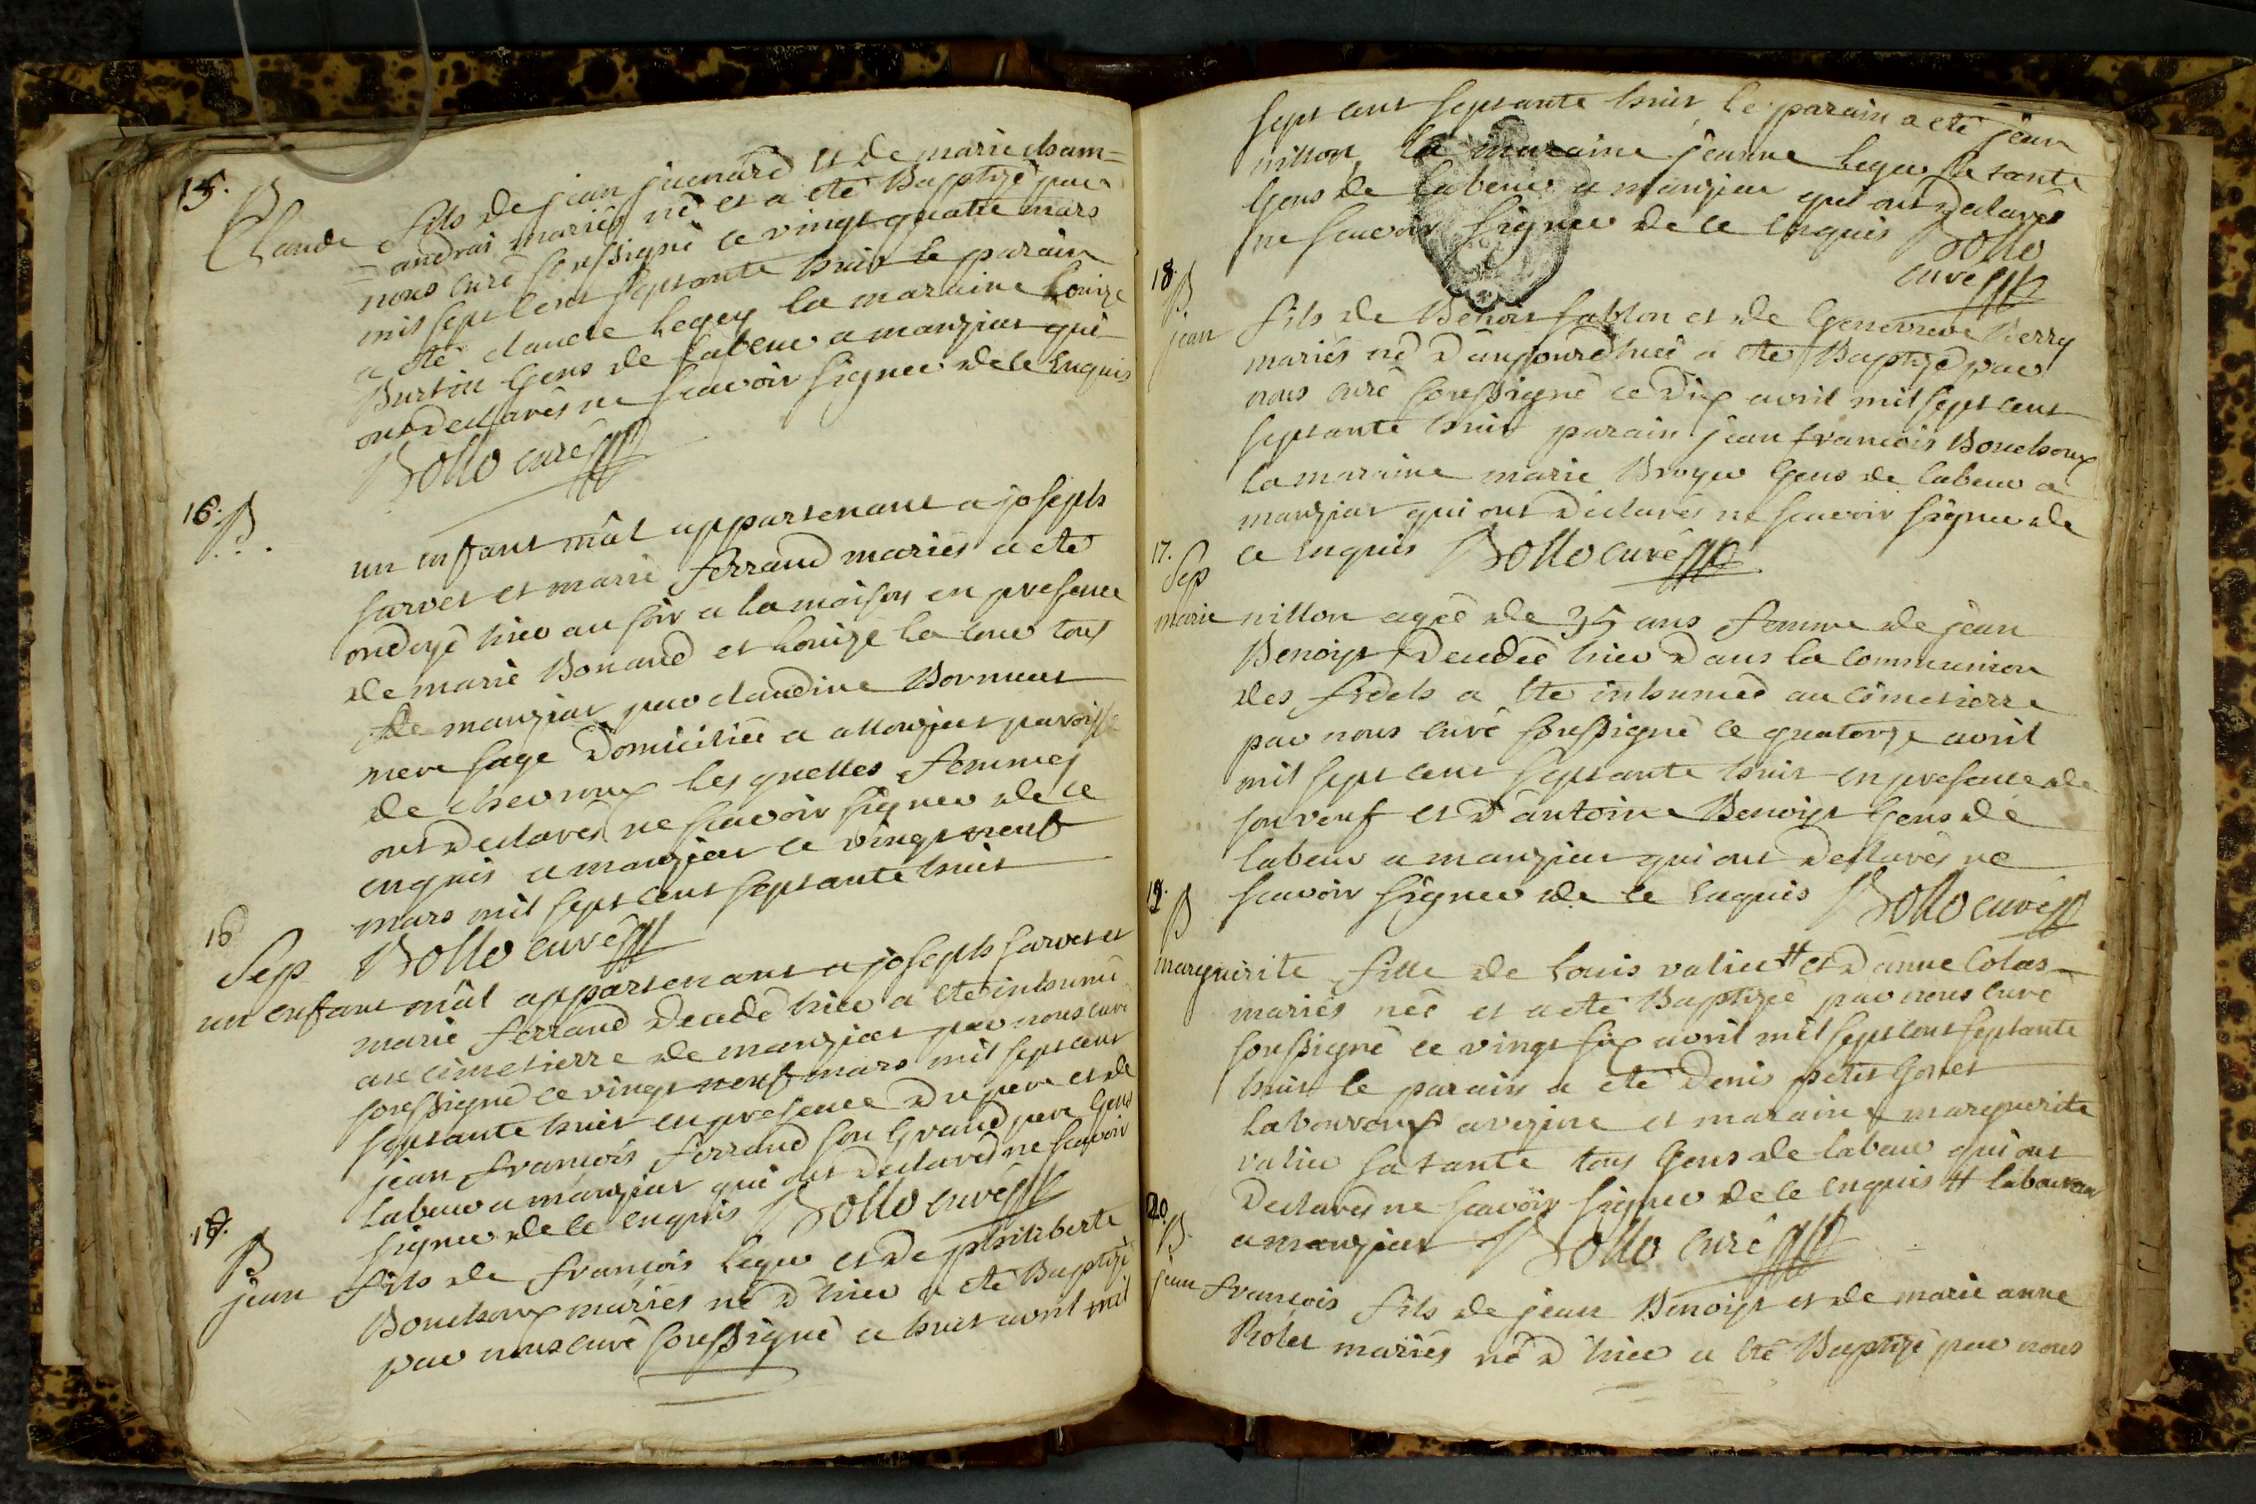 15. B
Claude fils de jean juenard et de marie cham=
=andrai mariés né et a eté Baptizé par
nous curé soussigné ce vingt quatre mars
mil sept cent septante huit le parain
a eté claude Legey la maraine Louize
Burtin gens de labeur a manziat qui
ont declarés ne scavoir signer de ce enquis
Bollo curé
16. B.
un enfant mâl appartenant a joseph
farvet et marie ferrand mariés a eté
ondoyé hier au soir a la maison en presence
de marie Bonand et Louize la cour tous
de manziat par claudine Bornuat
mere sage Domiciliée a allonziat paroisse
de chevroux les quelles femmes
ont declarés ne scavoir signer de ce
enquis a manziat ce vingt neuf
mars mil sept cent septante huit
16
Sep Bollo curé
un enfant mâl appartenant a joseph farvet et
marie ferrand decedé hier a eté inhumé
au cimetierre de manziat par nous curé
soussigné ce vingt neuf mars mil sept cent
septante huit en presence du pere et de
jean françois ferrand son grand pere gens
labeur a manziat qui ont declarés ne scavoir
signer de ce enquis Bollo curé
17. B
jean fils de françois Leger et de philiberte
Bouchoux mariés né d'hier a eté Baptizé
par nous curé soussigné ce huit avril mil
sept cent septante huit, le parain a eté jean
nitton, la maraine jeanne leger sa tante
gens de labeur a manziat qui ont declarés
ne scavoir signer de ce enquis Bollo
curé
18. B.
jean fils de Benoit fablon et de Genevieve Berry
mariés né d'aujourd'hui a eté Baptizé par
nous curé soussigné ce dix avril mil sept cent
septante huit parain jean françois Bouchoux
la maraine marie Broyer gens de labeur a
manziat qui ont declarés ne scavoir signer de
ce enquis Bollo curé
17.
Sep
marie nitton ageé de 35 ans femme de jean
Benoist decedeé hier dans la communion
des fidels a eté inhumeé au cimetierre
par nous curé soussigné ce quatorze avril
mil sept cent septante huit en presence de
son veuf et d'antoine Benoist gens de
labeur a manziat qui ont declarés ne
scavoir signer de ce enquis Bollo curé
19. B
marguerite fille de Louis vatier # et d'anne Colas
mariés neé et a eté Baptizeé par nous curé
soussigné ce vingt six avril mil sept cent septante
huit le parain a eté Denis petit Gonet
laboureur a vezine et maraine marguerite
vatier sa tante tous gens de labeur qui ont
declarés ne scavoir signer de ce enquis # laboureur
a manziat Bollo curé
20. B.
jean françois fils de jean Benoist et de marie anne
Rolet mariés né d'hier a eté Baptizé par nous